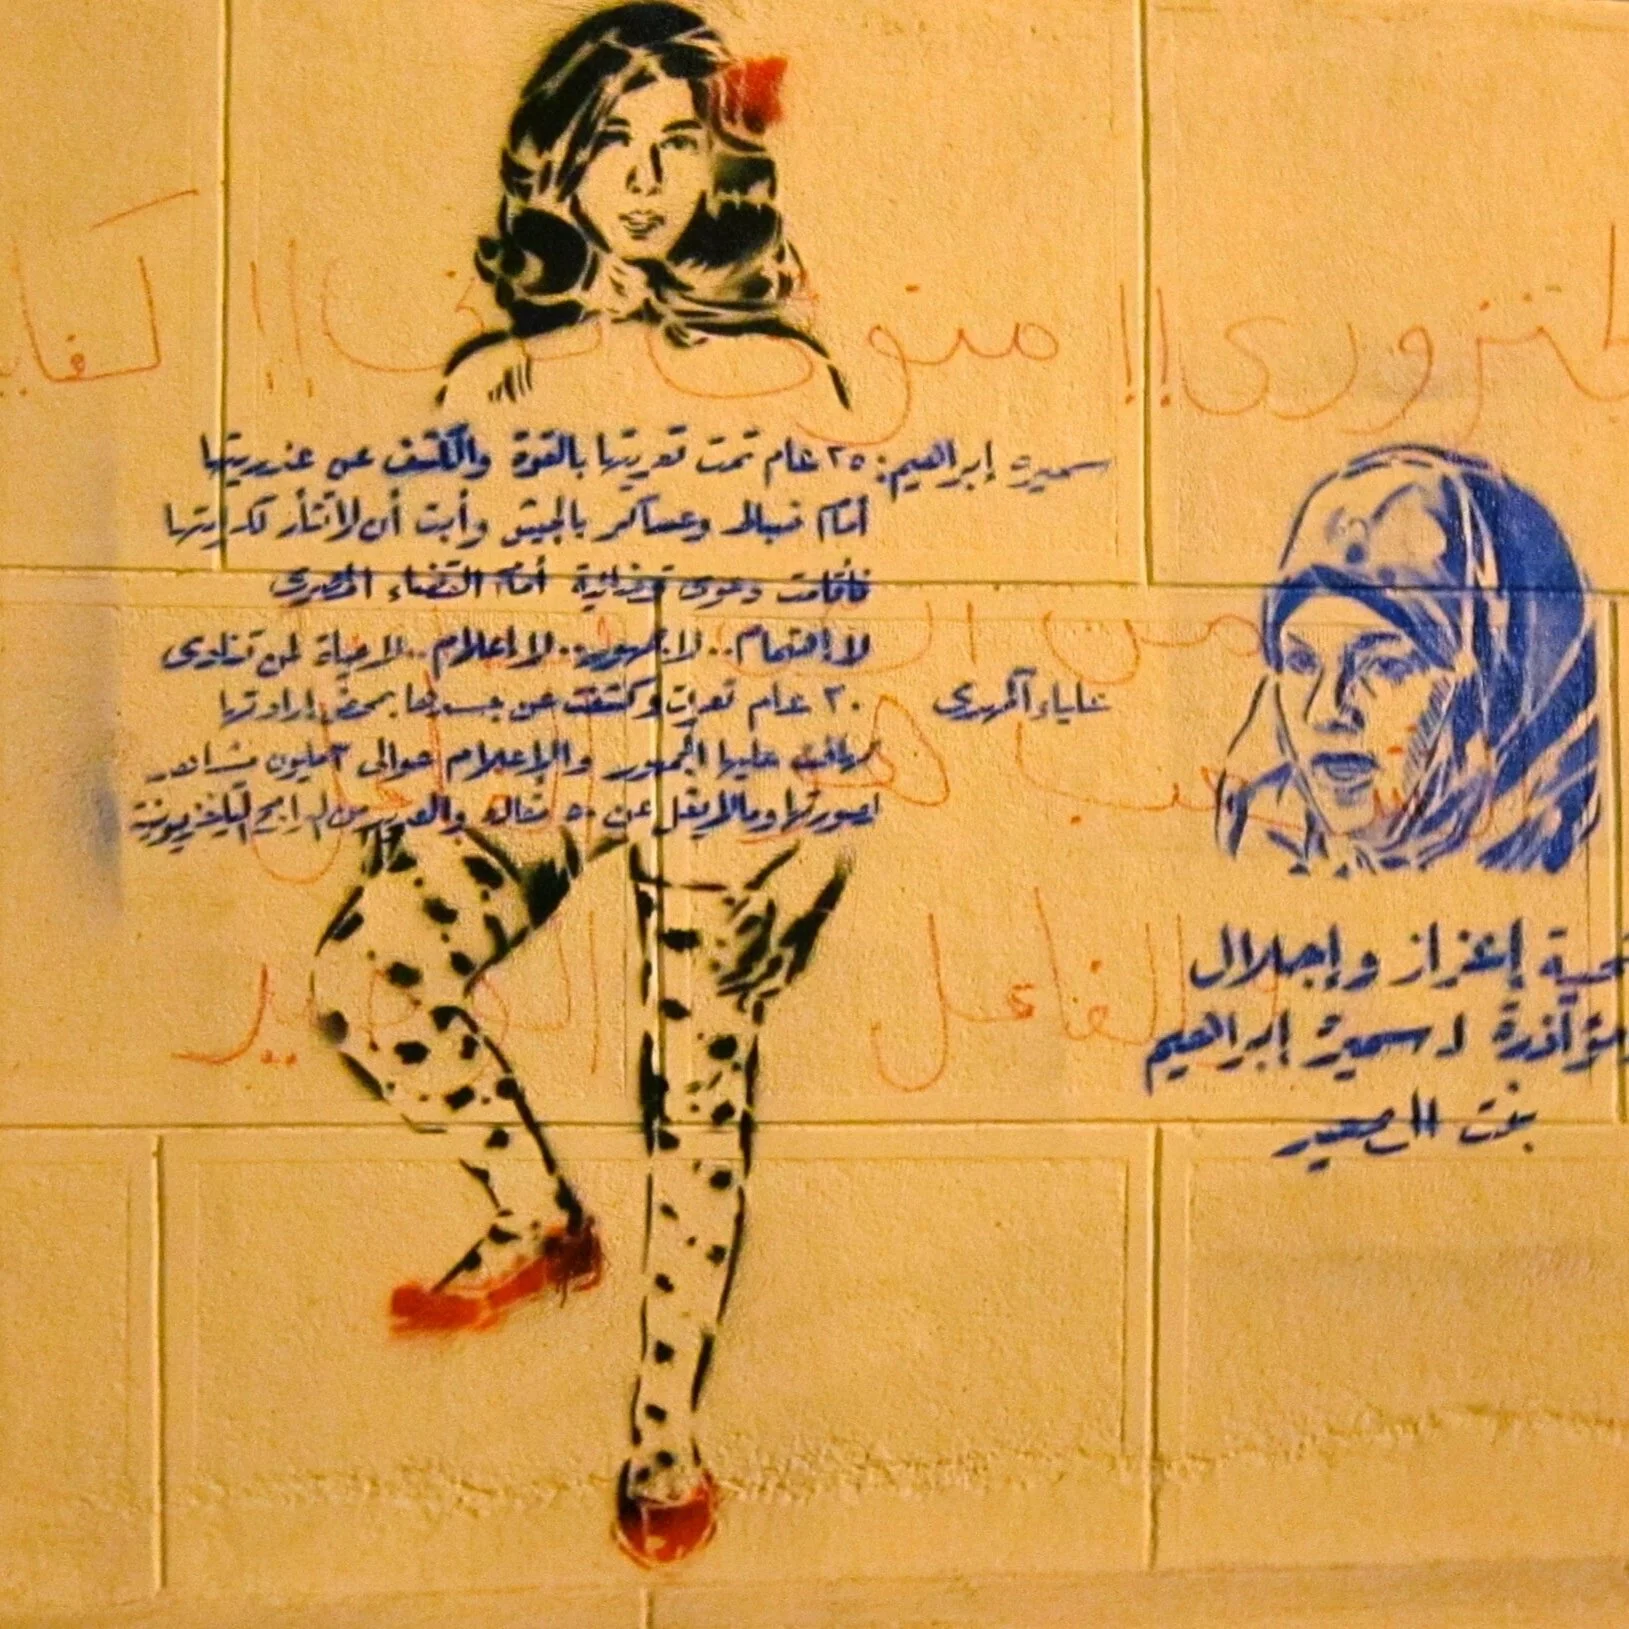 سميرة إبراهيم: ٢٥ عام تمت تعريتها بالقوة والكشف عن عذريتها
أمام ضباط وعساكر بالجيش وأبت أن لا تثأر لكرامتها
فأقامت دعوى قضائية أمام القضاء المصرى
لا إهتمام.. لا جمهور.. لا إعلام.. لا حياة لمن تنادى
علياء المهدى ٢٠ عام تعرت وكشفت عن جسدها بمحض إرادتها
تهافت عليها الجمهور والإعلام حوالى ٣ مليون مشاهد
لصورتها وما لا يقل عن ٥٠ مقاله والعديد من البرامج التليفزيونية
تحية إعزاز وإجلال
ومؤازرة لـ سميرة إبراهيم
بنت الصعيد
!! !!
من
الفاعل